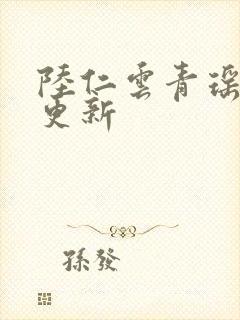 陸仁雲青瑶
更新
孫發